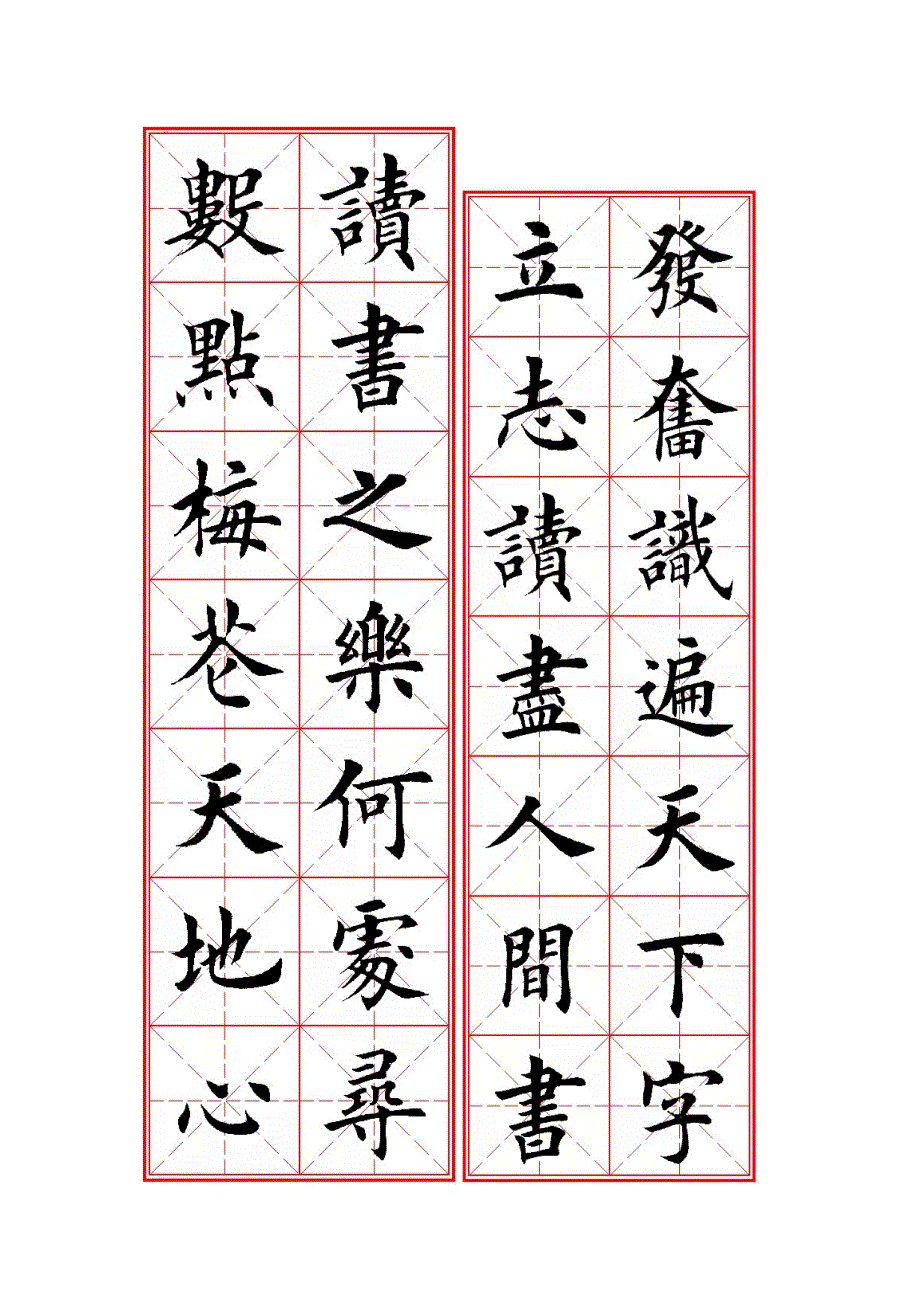 發奮識遍天下字
立志讀盡人間書
讀書之樂何處尋
數點梅花天地心